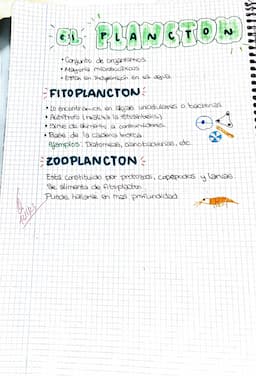 EL PLANCTON
• Conjunto de organismos
• Mayoría microscópicos
• Están en suspensión en el agua.
FITOPLANCTON
• Lo encontramos en algas unicelulares o bacterias
• Autótrofo (realiza la fotosíntesis)
• Sirve de alimento a consumidores
• Base de la cadena trófica
Ejemplos: Diatomeas, cianobacterias, etc.
ZOOPLANCTON
Está constituido por protozoos, copépodos y larvas.
Se alimenta de fitoplacton.
Puede hallarse en mas profundidad